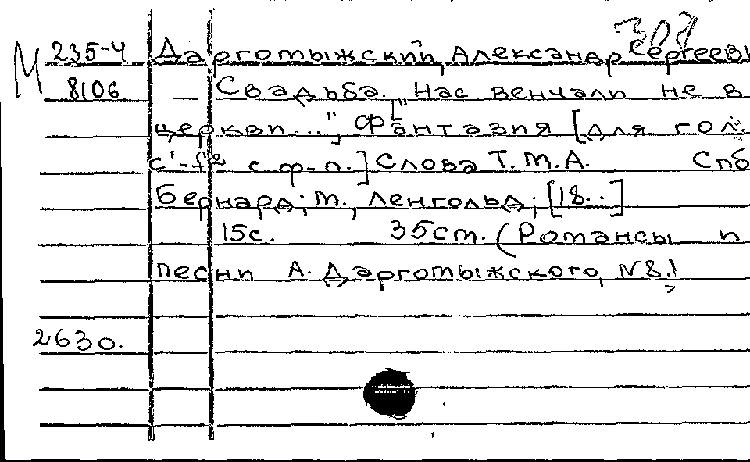 308
М 235-4 Даргомыжский, Александр Сергееви
8106 Свадьба. ["Нас венчали не в
церкви..."], Фантазия [для гол.
с'-f² с ф-п.] Слова Т.М.А. Спб
Бернард; М., Ленгольд, [18..]
15с. 35см. (Романсы и
песни А. Даргомыжского, №8.)
2630.